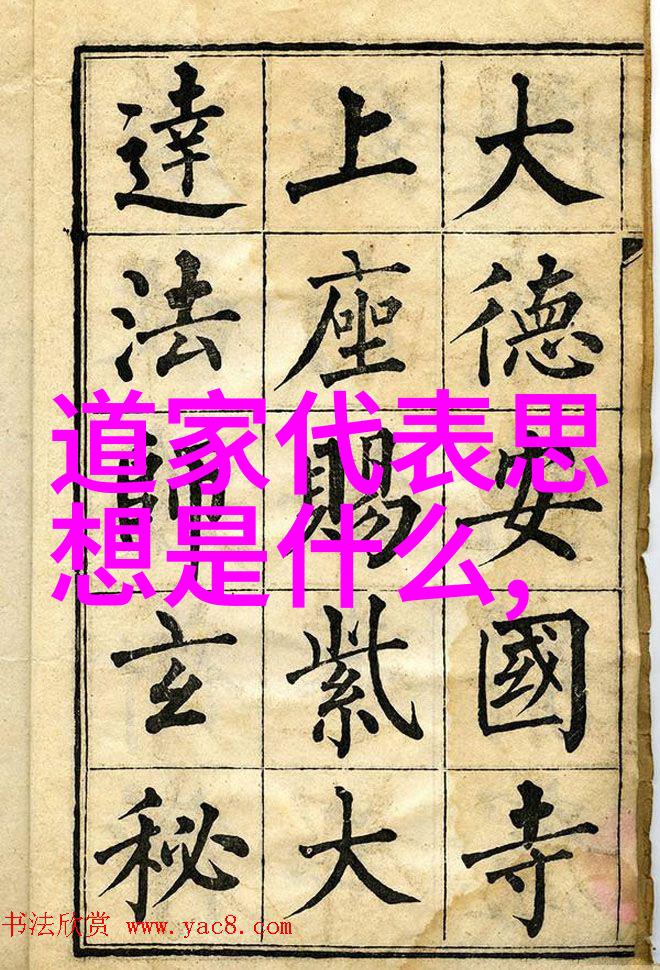 大德安國寺
上座賜紫大
達法師玄秘
道家代表思
想是什么,
书法欣赏 www.yac8.com